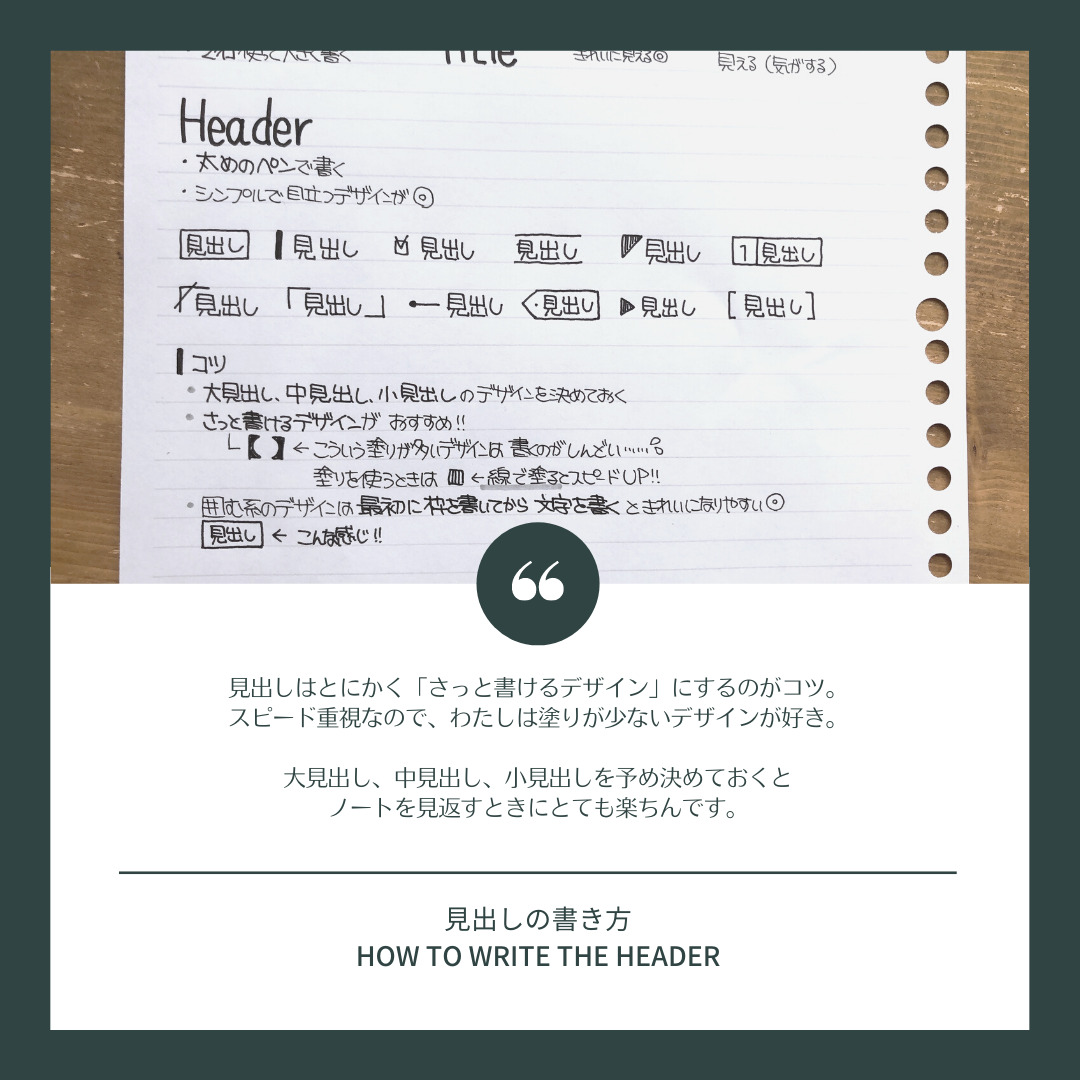 2行使って大きく書く Title きれいに見える◎ 見える（気がする）
Header
・太めのペンで書く
・シンプルで目立つデザインが◎
見出し 見出し 見出し 見出し 見出し 1 見出し
見出し 「見出し」 見出し 見出し 見出し [見出し]
コツ
・大見出し、中見出し、小見出しのデザインを決めておく
・さっと書けるデザインが おすすめ!!
【 】←こういう塗りが多いデザインは 書くのがしんどい……
塗りを使うときは ←線で塗るとスピードUP!!
・囲む系のデザインは最初に枠を書いてから 文字を書くときれいになりやすい◎
見出し ← こんな感じ!!
見出しはとにかく「さっと書けるデザイン」にするのがコツ。
スピード重視なので、わたしは塗りが少ないデザインが好き。
大見出し、中見出し、小見出しを予め決めておくと
ノートを見返すときにとても楽ちんです。
見出しの書き方
HOW TO WRITE THE HEADER